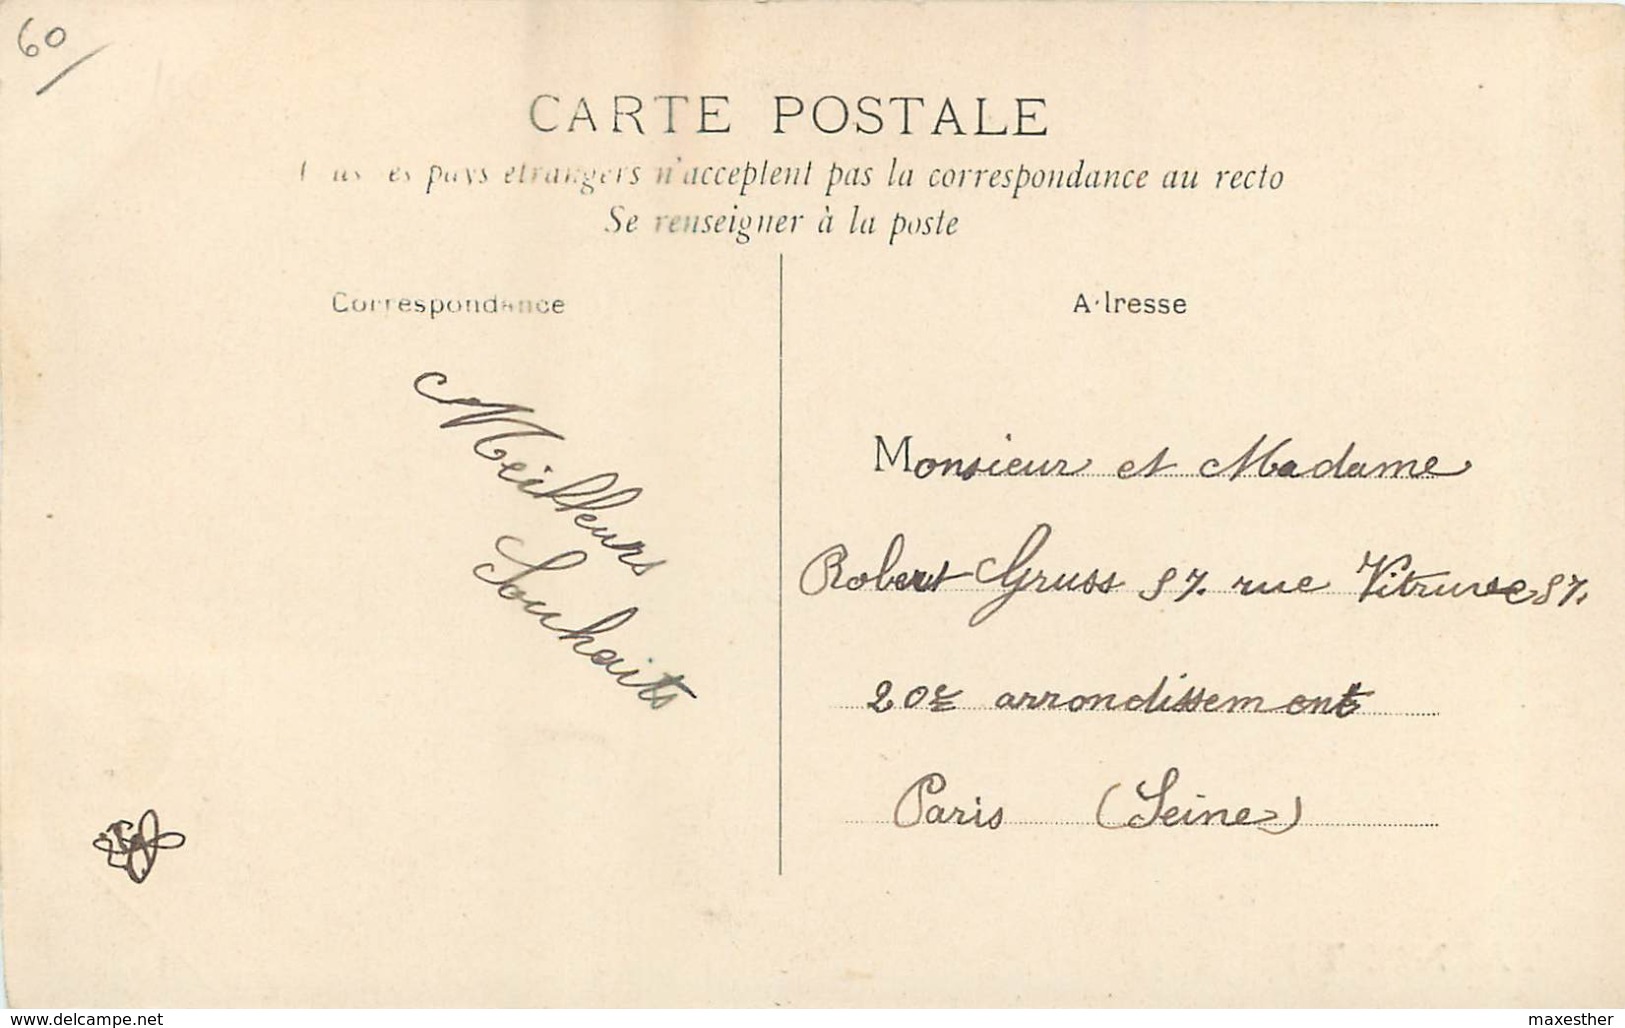 60
CARTE POSTALE
pays étrangers n'acceptent pas la correspondance au recto
Se renseigner à la poste
Correspondance
Adresse
Meilleurs
Souhaits
Monsieur et Madame
Robert Gruss 57. rue Vitruve 57.
20e arrondissement
Paris (Seine)
www.delcampe.net
maxesther